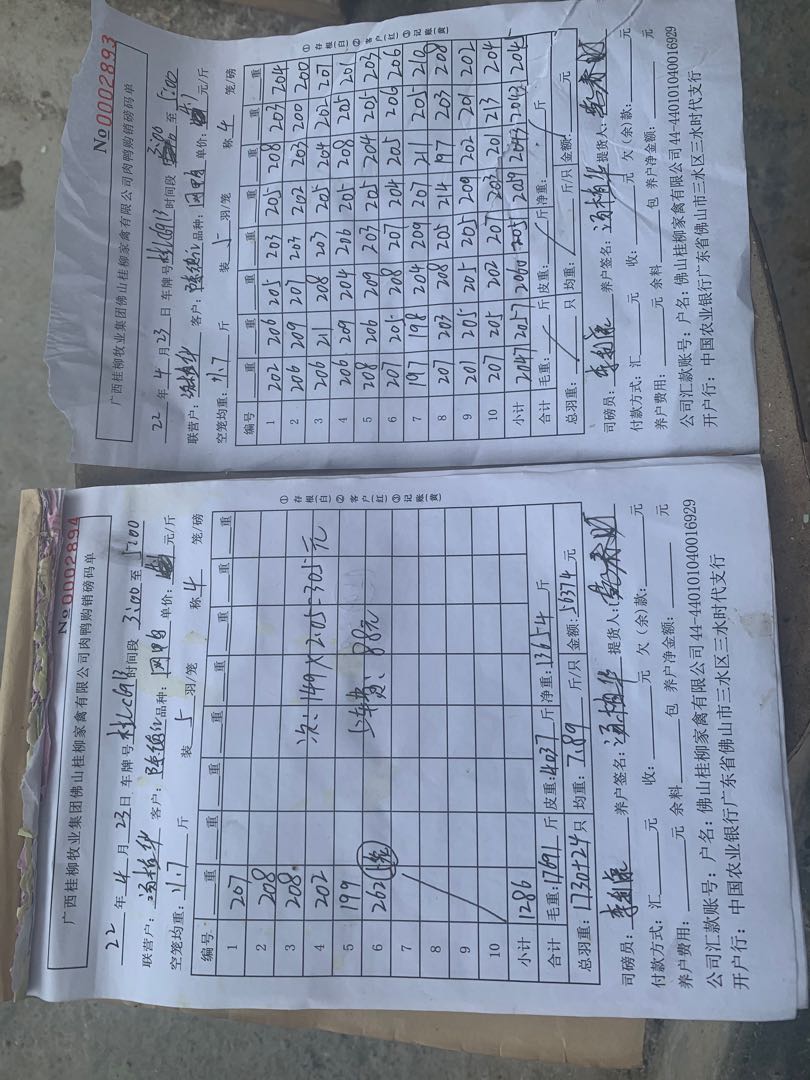 No 0002894
广西桂柳牧业集团佛山桂柳家禽有限公司肉鸭购销磅码单
22 年 4 月 23 日 车牌号 时间段 3:00 至 5:00
联营户: 客户: 品种: 单价: 元/斤
空笼均重: 11.7 斤 装 5 羽/笼 称 4 笼/磅
编号 重 重 重 重 重 重 重 重
1 207
2 208
3 208
4 202 次: 149×2.05=305元
5 199
6 262 卡费: 88元
7
8
9
10
小计 1286
合计 毛重: 17691 斤 皮重: 4037 斤 净重: 13654 斤
总羽重: 1730+24 只 均重: 7.89 斤/只 金额: 50374 元
司磅员: 养户签名: 提货人:
付款方式: 汇 元 收: 元 欠(余)款: 元
养户费用: 元 余料 包 养户净金额: 元
公司汇款账号: 户名: 佛山桂柳家禽有限公司 44-440101040016929
开户行: 中国农业银行广东省佛山市三水区三水时代支行
①存根(白) ②客户(红) ③记账(黄)
No 0002893
广西桂柳牧业集团佛山桂柳家禽有限公司肉鸭购销磅码单
22 年 4 月 23 日 车牌号 时间段 3:00 至 5:00
联营户: 客户: 品种: 单价: 元/斤
空笼均重: 11.7 斤 装 5 羽/笼 称 4 笼/磅
编号 重 重 重 重 重 重 重 重
1 202 206 205 203 205 208 203 204
2 206 209 207 203 202 203 200 200
3 206 21 208 203 205 204 202 207
4 206 209 204 206 205 208 205 201
5 208 206 209 203 205 204 205 203
6 207 205 208 207 204 205 206 206
7 197 198 204 209 207 211 205 210
8 207 203 208 205 214 197 203 208
9 201 205 205 205 209 202 201 202
10 207 205 202 207 203 201 213 204
小计 2047 2057 2060 2043 2042 2045
合计 毛重: 斤 皮重: 斤 净重: 斤
总羽重: 只 均重: 斤/只 金额: 元
司磅员: 养户签名: 提货人:
付款方式: 汇 元 收: 元 欠(余)款: 元
养户费用: 元 余料 包 养户净金额: 元
公司汇款账号: 户名: 佛山桂柳家禽有限公司 44-440101040016929
开户行: 中国农业银行广东省佛山市三水区三水时代支行
①存根(白) ②客户(红) ③记账(黄)